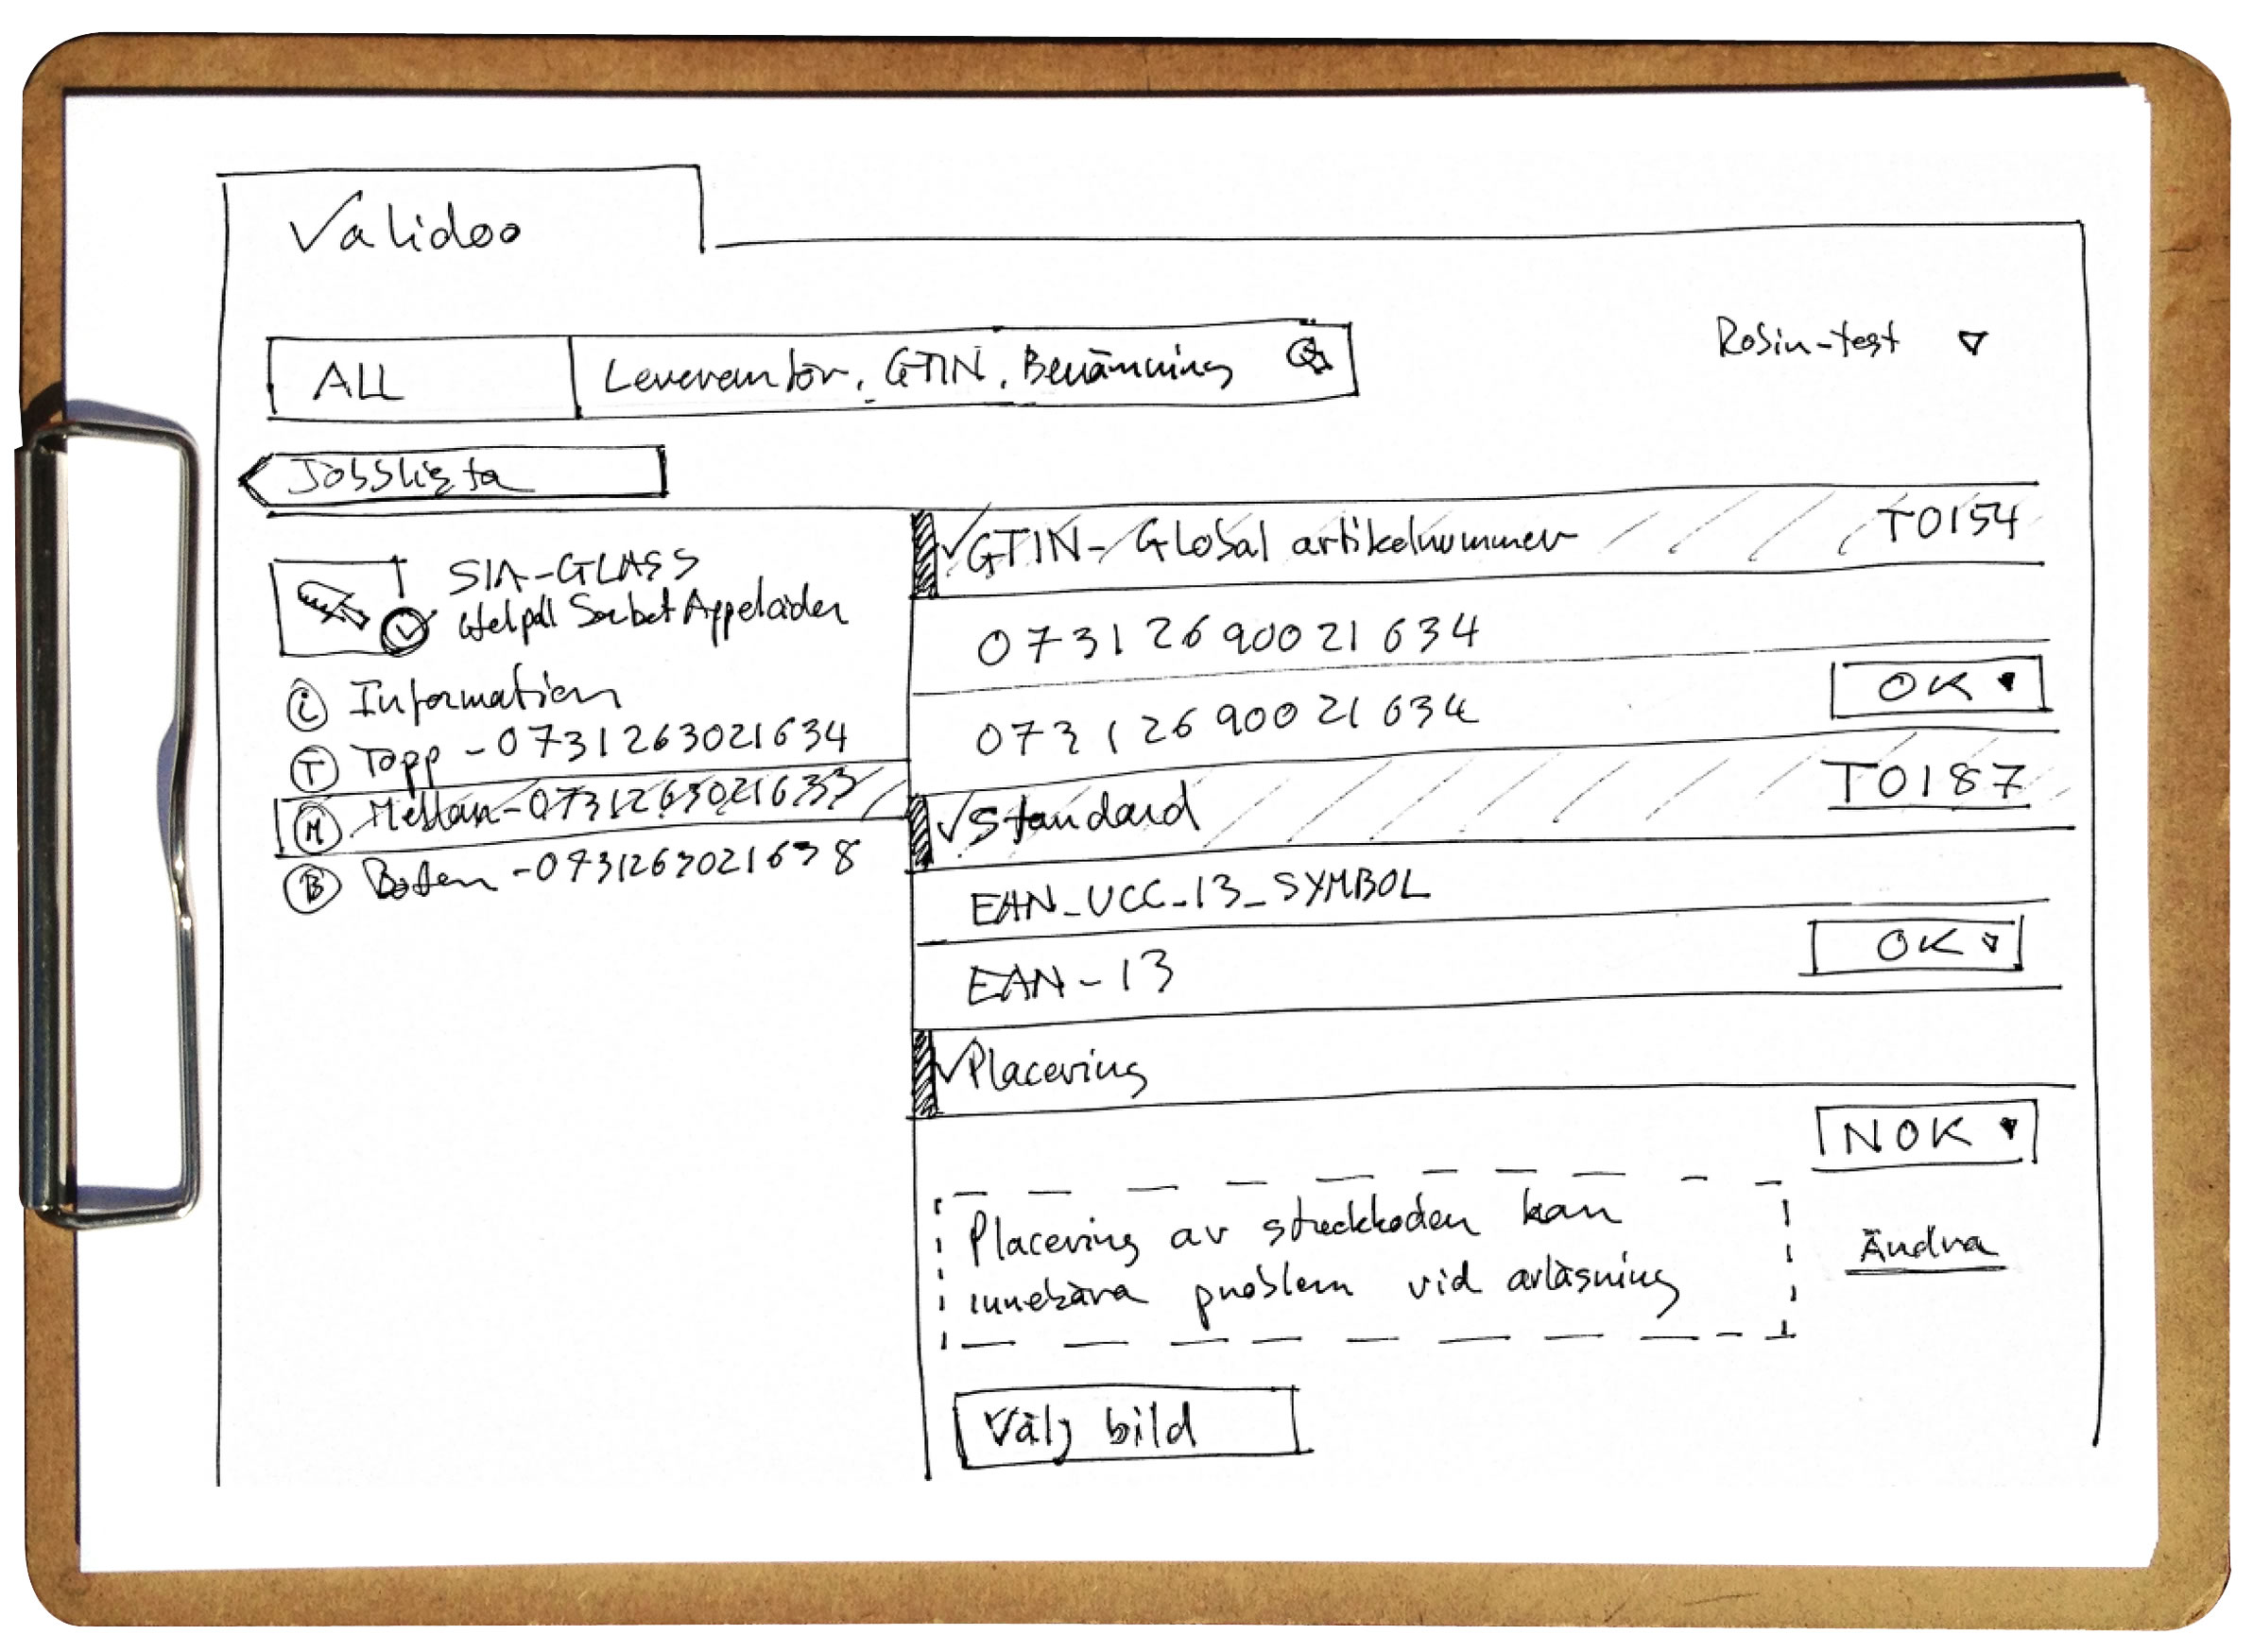 Validoo
ALL Leverantör, GTIN, Benämning
Robin-test
Jobbslista
SIA-GLASS
Helpall Sorbet Appelcider
i Information
T Topp - 0731263021634
M Mellan - 0731263021633
B Botten - 0731263021638
GTIN - Global artikelnummer T0154
07312690021634
07312690021634 OK
Standard T0187
EAN_UCC_13_SYMBOL
EAN-13 OK
Placering
NOK
Placering av streckkoden kan
innebära problem vid avläsning
Ändra
Välj bild